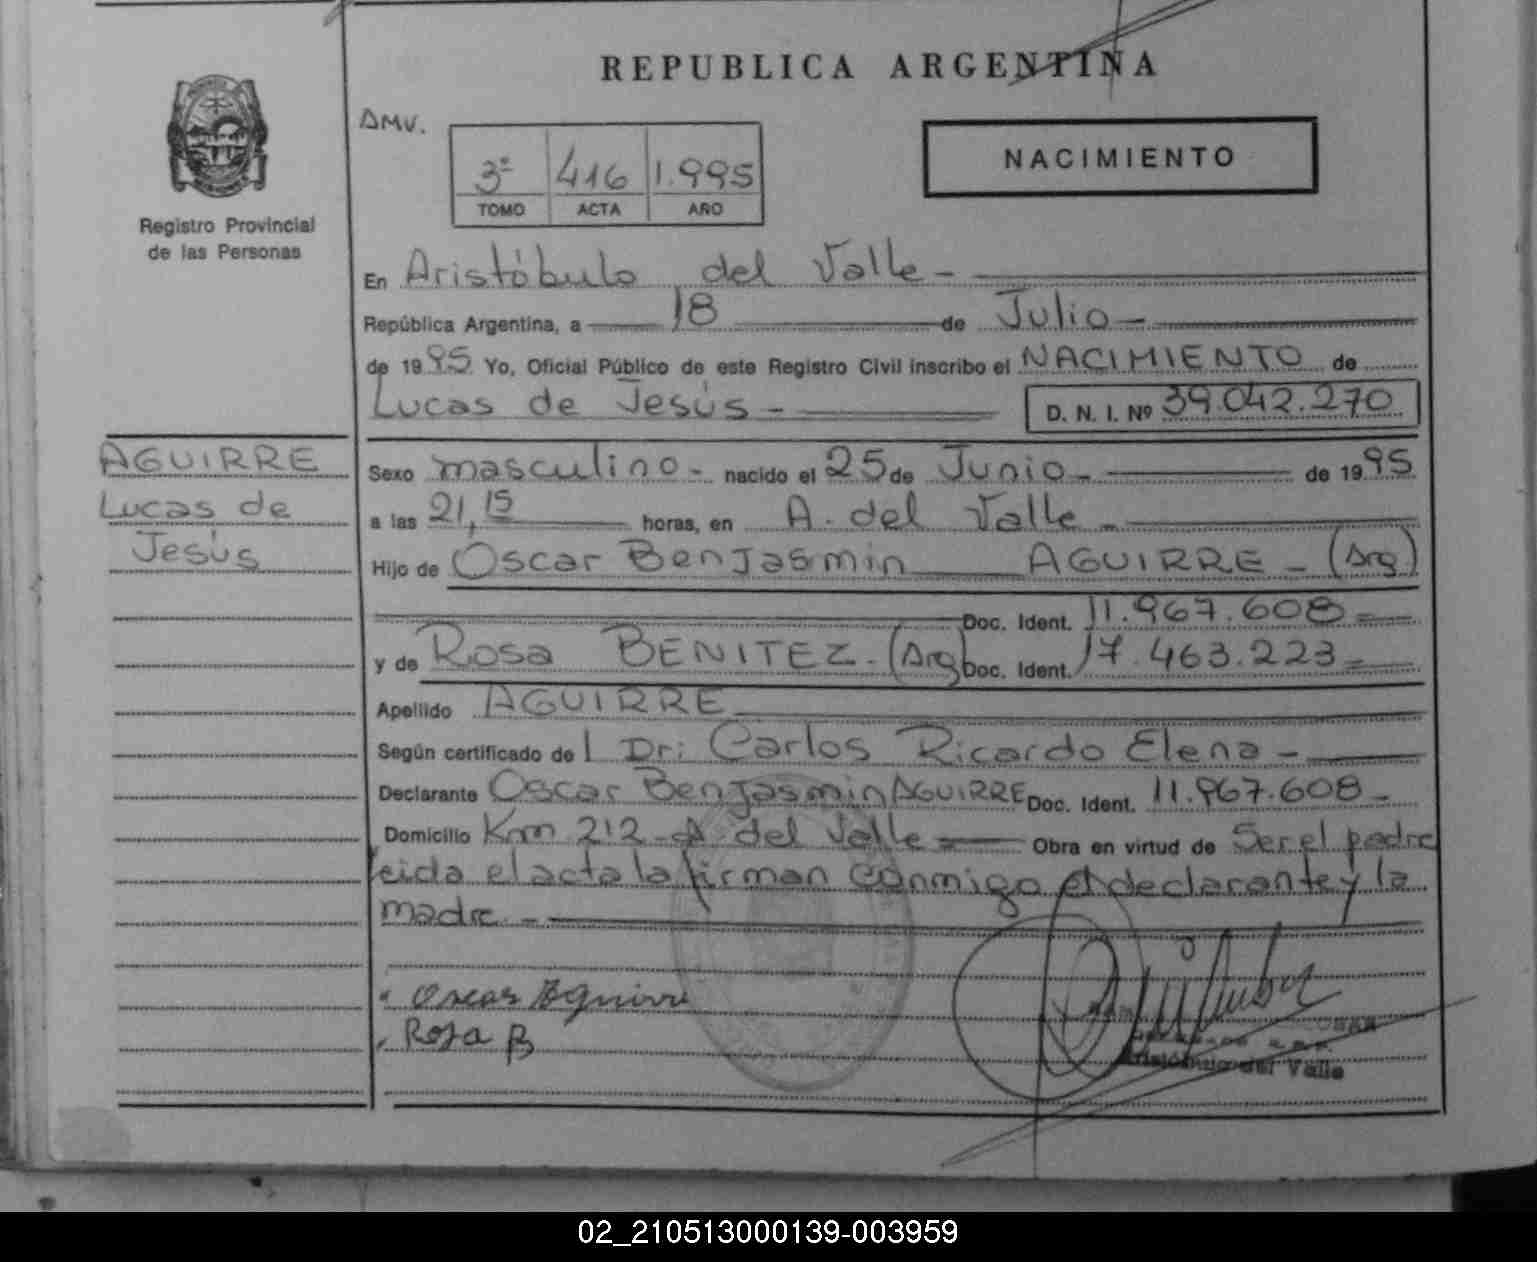 REPUBLICA ARGENTINA
Registro Provincial
de las Personas
DMV.
3º 416 1.995
TOMO ACTA AÑO
NACIMIENTO
En Aristóbulo del Valle -
República Argentina, a 18 de Julio -
de 1995 Yo, Oficial Público de este Registro Civil inscribo el NACIMIENTO de
Lucas de Jesús - D. N. I. Nº 39.042.270
AGUIRRE
Lucas de
Jesús
Sexo masculino - nacido el 25 de Junio - de 1995
a las 21,15 horas, en A. del Valle -
Hijo de Oscar Benjasmin AGUIRRE - (Arg)
Doc. Ident. 11.967.608 -
y de Rosa BENITEZ - (Arg) Doc. Ident. 17.463.223 -
Apellido AGUIRRE
Según certificado de l Dr: Carlos Ricardo Elena -
Declarante Oscar Benjasmin AGUIRRE Doc. Ident. 11.967.608 -
Domicilio Km 212 - A del Valle Obra en virtud de Ser el padre
leida el acta la firman conmigo el declarante y la
madre -
Oscar Aguirre
Rosa B
Aristóbulo del Valle
02_210513000139-003959